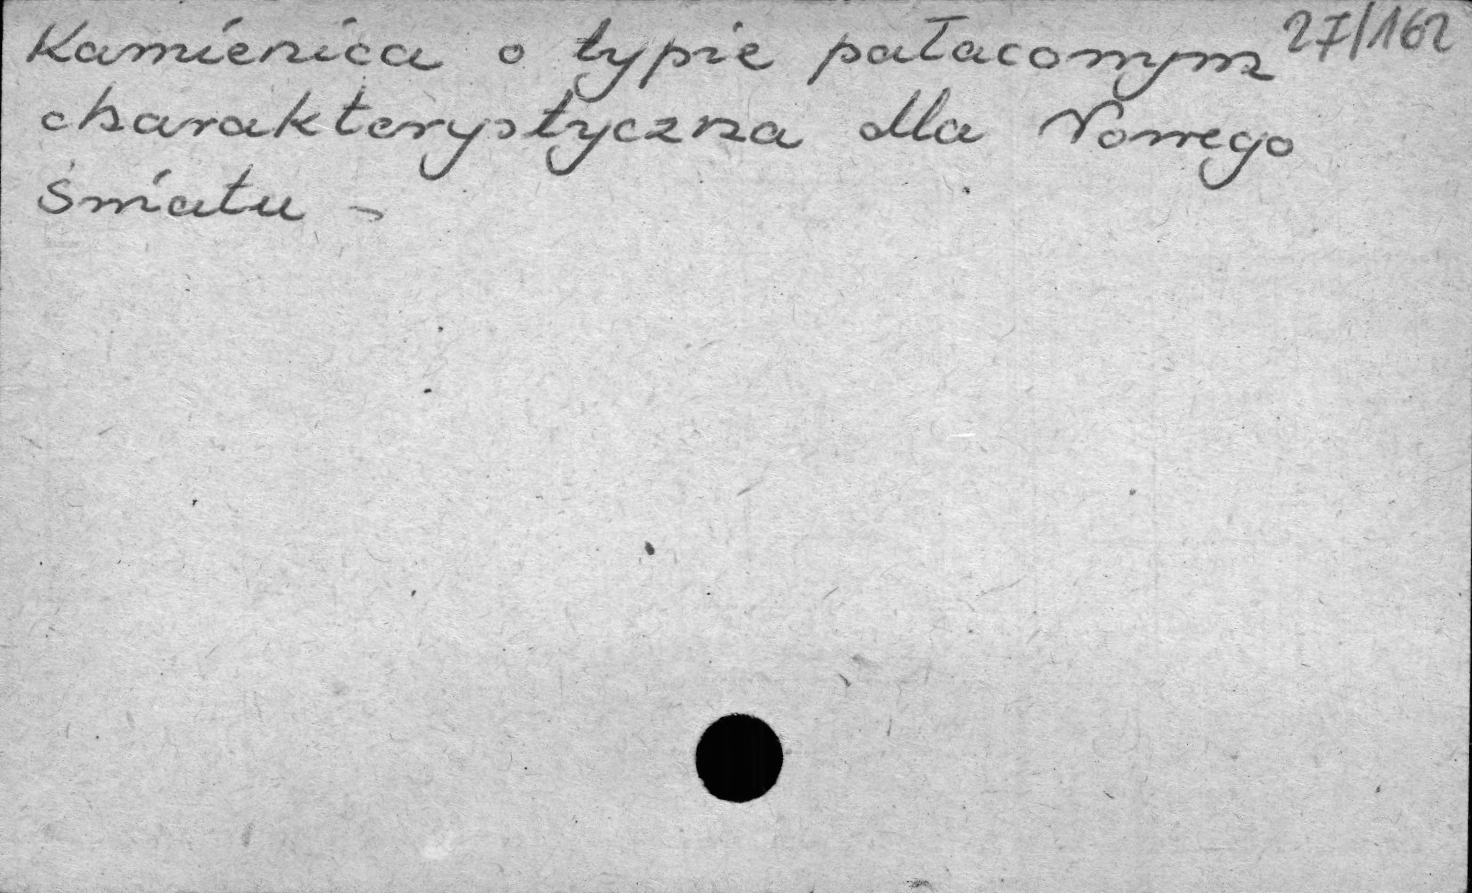 Kamienica o typie pałacowym 27/162
charakterystyczna dla Nowego
Świata -